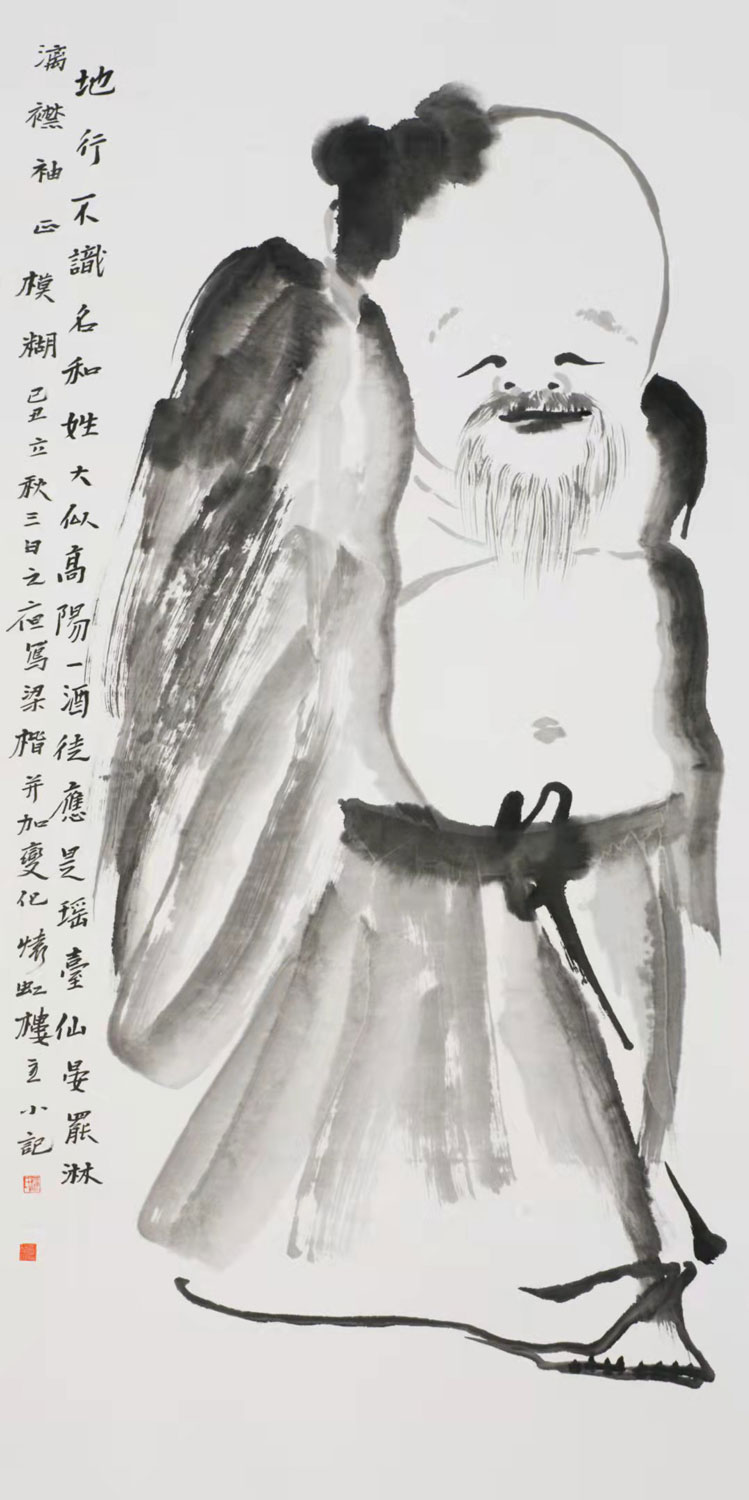 地行不識名和姓大似高陽一酒徒應是瑶臺仙晏罷淋
漓襟袖正模糊己丑立秋三日之夜寫梁楷并加變化烤虹樓主小記